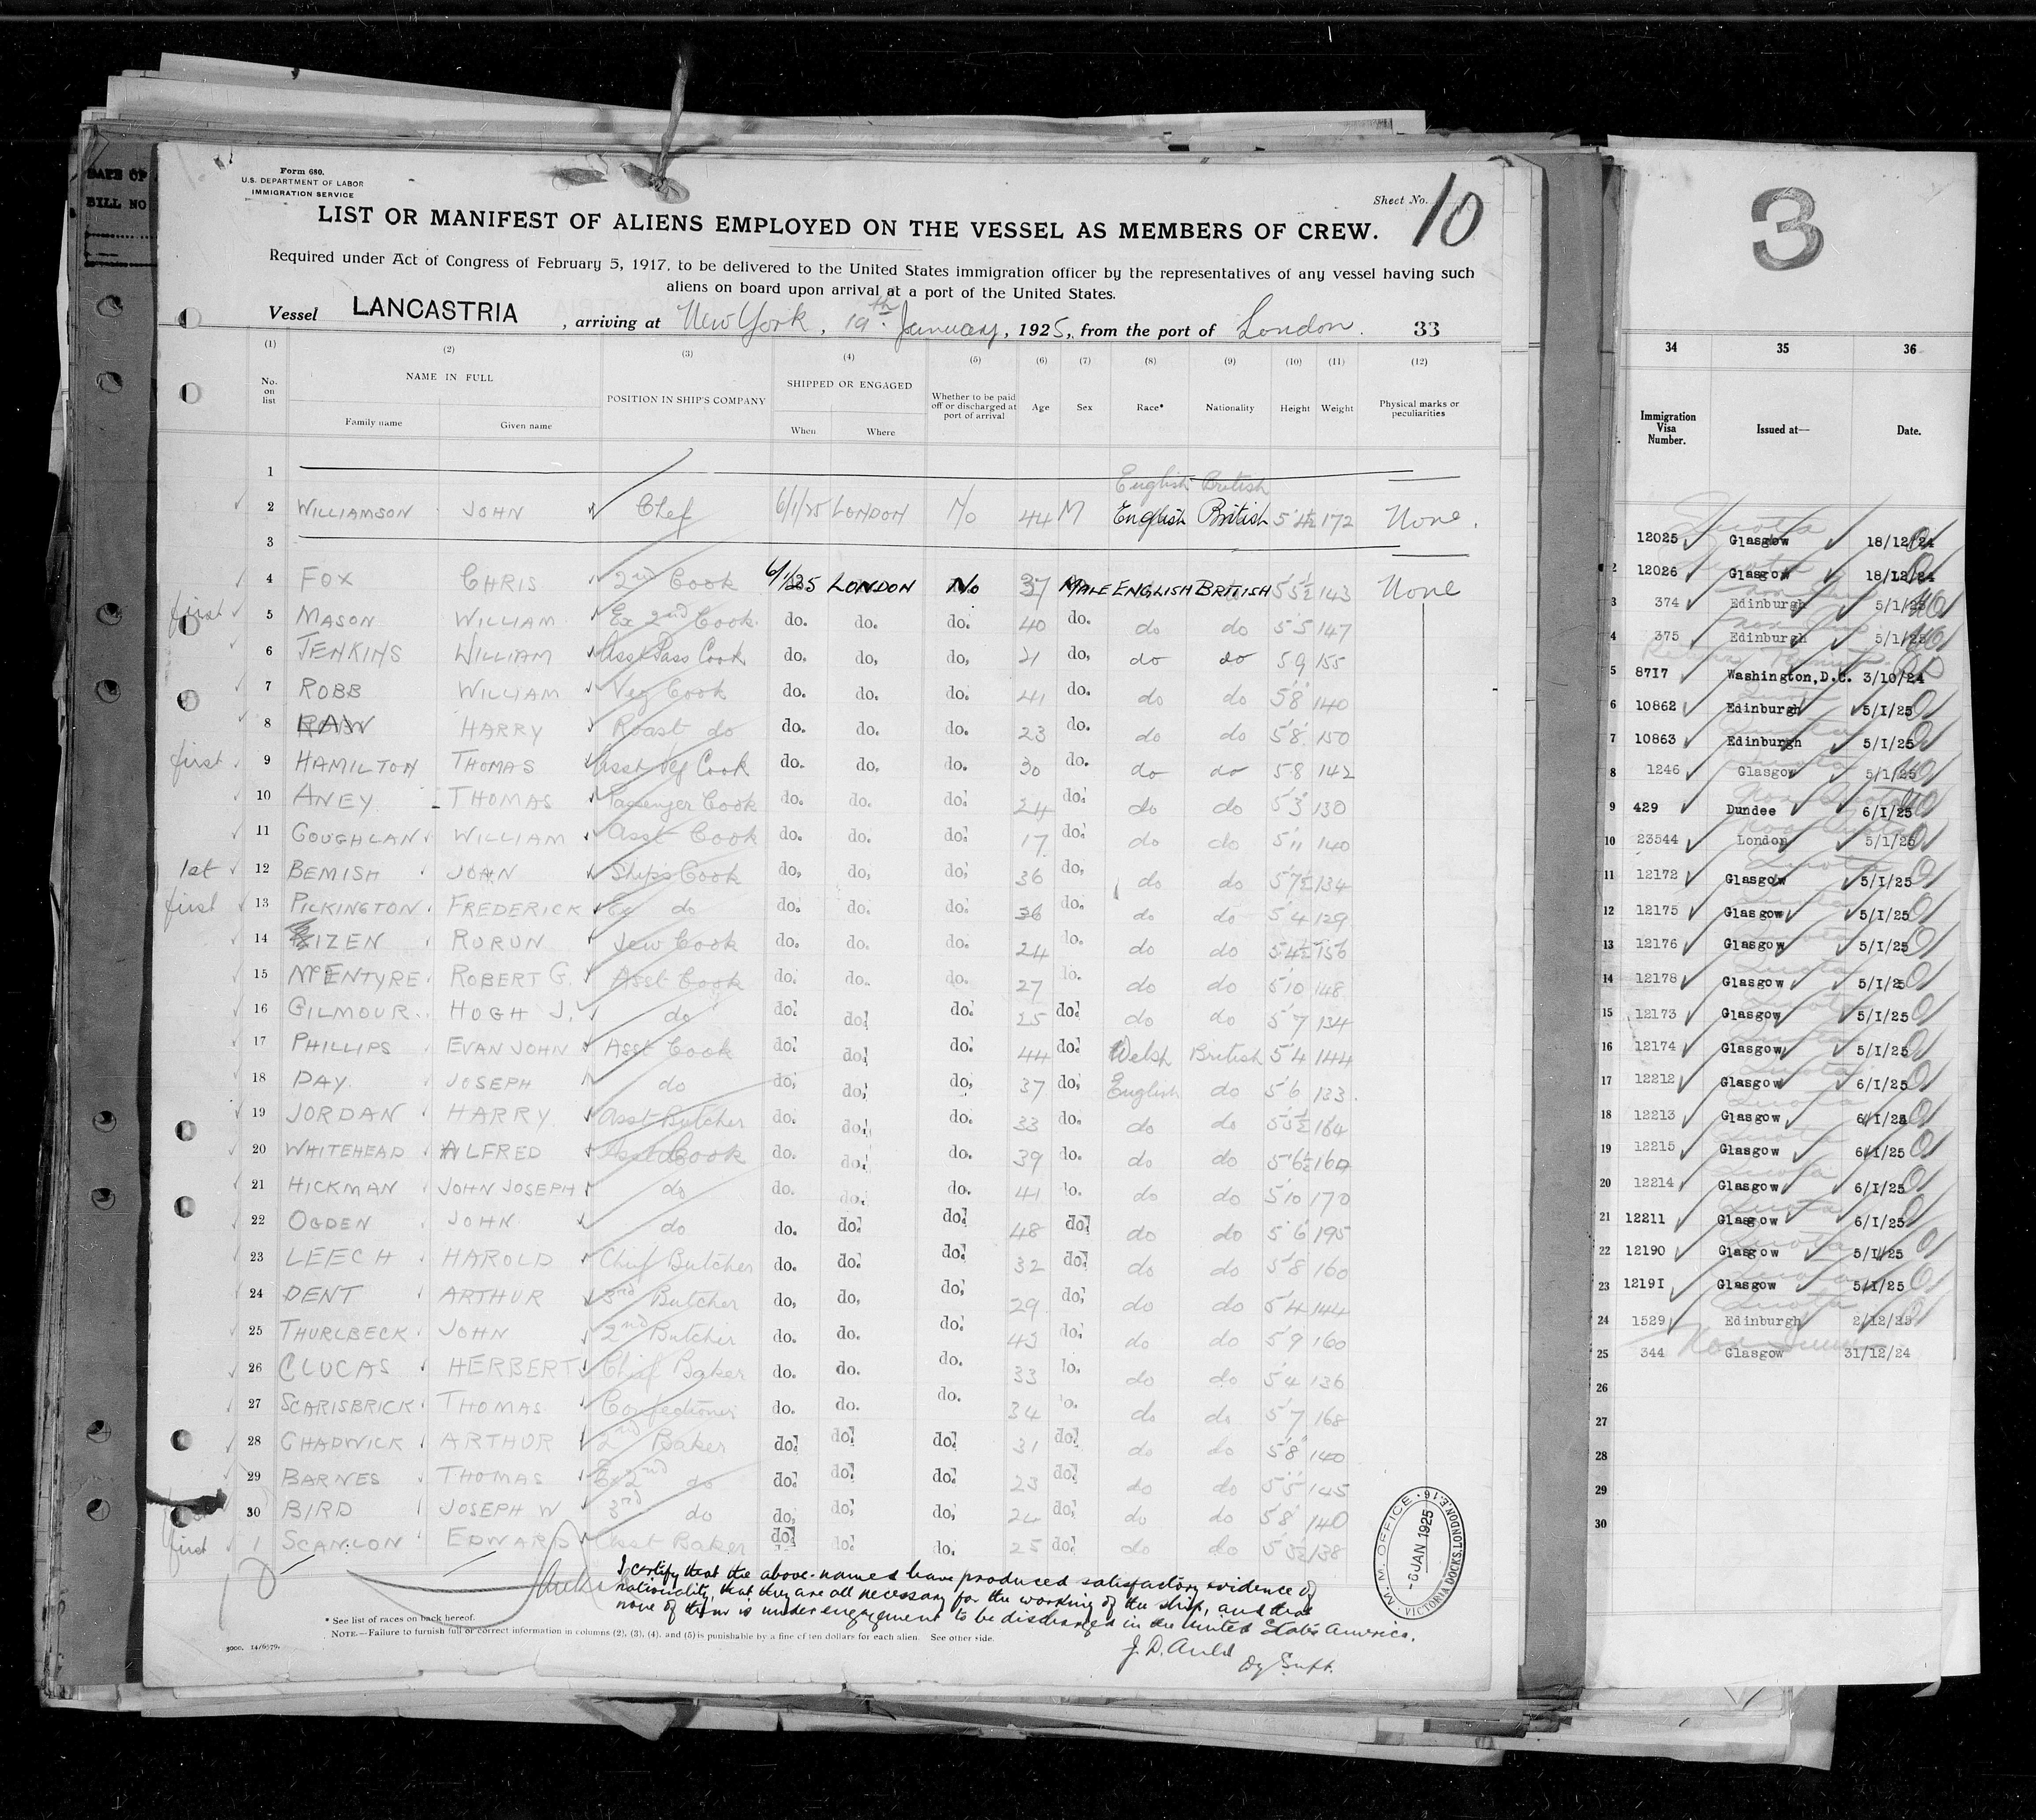 DATE OF
BILL NO
Form 680.
U.S. DEPARTMENT OF LABOR
IMMIGRATION SERVICE
Sheet No. 10
LIST OR MANIFEST OF ALIENS EMPLOYED ON THE VESSEL AS MEMBERS OF CREW.
Required under Act of Congress of February 5, 1917, to be delivered to the United States immigration officer by the representatives of any vessel having such
aliens on board upon arrival at a port of the United States.
Vessel LANCASTRIA, arriving at New York, 19th January, 1925, from the port of London. 33
(1) (2) (3) (4) (5) (6) (7) (8) (9) (10) (11) (12)
No. on list NAME IN FULL Family name Given name POSITION IN SHIP'S COMPANY SHIPPED OR ENGAGED When Where Whether to be paid off or discharged at port of arrival Age Sex Race* Nationality Height Weight Physical marks or peculiarities
1 English British
2 WILLIAMSON JOHN Chef 6/1/25 LONDON No 44 M English British 5'4½ 172 None.
3
4 FOX CHRIS 2nd Cook 6/1/25 LONDON No 37 MALE ENGLISH BRITISH 5'5½ 143 None
first 5 MASON WILLIAM Ex 2nd Cook do. do. do. 40 do. do do 5'5 147
6 JENKINS WILLIAM Asst Pass Cook do. do. do. 21 do. do do 5'9 155
7 ROBB WILLIAM Veg Cook do. do. do. 41 do. do do 5'8 140
8 HARRY Roast do do. do. do. 23 do. do do 5'8 150
first 9 HAMILTON THOMAS Asst Veg Cook do. do. do. 30 do. do do 5'8 142
10 ANEY THOMAS Passenger Cook do. do. do. 24 do. do do 5'3 130
11 COUGHLAN WILLIAM Asst Cook do. do. do. 17 do. do do 5'11 140
1st 12 BEMISH JOHN Ship's Cook do. do. do. 36 do. do do 5'7½ 134
first 13 PILKINGTON FREDERICK Ex do do. do. do. 36 do. do do 5'4 129
14 IZEN RORUN Jew Cook do. do. do. 24 do. do do 5'4½ 156
15 McENTYRE ROBERT G. Asst Cook do. do. do. 27 do. do do 5'10 148
16 GILMOUR HUGH J. do do. do. do. 25 do. do do 5'7 134
17 PHILLIPS EVAN JOHN Asst Cook do. do. do. 44 do. Welsh British 5'4 144
18 DAY JOSEPH do do. do. do. 37 do. English do 5'6 133
19 JORDAN HARRY Asst Butcher do. do. do. 33 do. do do 5'5½ 164
20 WHITEHEAD ALFRED Asst Cook do. do. do. 39 do. do do 5'6½ 160
21 HICKMAN JOHN JOSEPH do do. do. do. 41 do. do do 5'10 170
22 OGDEN JOHN do do. do. do. 48 do. do do 5'6 195
23 LEECH HAROLD Chief Butcher do. do. do. 32 do. do do 5'8 160
24 DENT ARTHUR 3rd Butcher do. do. do. 29 do. do do 5'4 144
25 THURLBECK JOHN 2nd Butcher do. do. do. 43 do. do do 5'9 160
26 CLUCAS HERBERT Chief Baker do. do. do. 33 do. do do 5'4 136
27 SCARISBRICK THOMAS Confectioner do. do. do. 34 do. do do 5'7 168
28 CHADWICK ARTHUR 2nd Baker do. do. do. 31 do. do do 5'8 140
29 BARNES THOMAS Ex 2nd do do. do. do. 23 do. do do 5'5 145
30 BIRD JOSEPH W 3rd do do. do. do. 24 do. do do 5'8 140
first 1 SCANLON EDWARD Asst Baker do. do. do. 25 do. do do 5'5½ 138
I certify that the above-named have produced satisfactory evidence of
nationality, that they are all necessary for the working of the ship, and that
none of them is under engagement to be discharged in the United States America.
J. D. Auld Dy Supt.
M. M. OFFICE
-6 JAN 1925
VICTORIA DOCKS. LONDON. E.16
* See list of races on back hereof.
NOTE.—Failure to furnish full or correct information in columns (2), (3), (4), and (5) is punishable by a fine of ten dollars for each alien. See other side.
3
34 35 36
Immigration Visa Number. Issued at— Date.
12025 Glasgow 18/12/24
2 12026 Glasgow 18/12/24
3 374 Edinburgh 5/1/25
4 375 Edinburgh 5/1/25
5 8717 Washington, D.C. 3/10/24
6 10862 Edinburgh 5/1/25
7 10863 Edinburgh 5/1/25
8 1246 Glasgow 5/1/25
9 429 Dundee 6/1/25
10 23544 London 5/1/25
11 12172 Glasgow 5/1/25
12 12175 Glasgow 5/1/25
13 12176 Glasgow 5/1/25
14 12178 Glasgow 5/1/25
15 12173 Glasgow 5/1/25
16 12174 Glasgow 5/1/25
17 12212 Glasgow 6/1/25
18 12213 Glasgow 6/1/25
19 12215 Glasgow 6/1/25
20 12214 Glasgow 6/1/25
21 12211 Glasgow 6/1/25
22 12190 Glasgow 5/1/25
23 12191 Glasgow 5/1/25
24 1529 Edinburgh 2/12/25
25 344 Glasgow 31/12/24
26
27
28
29
30